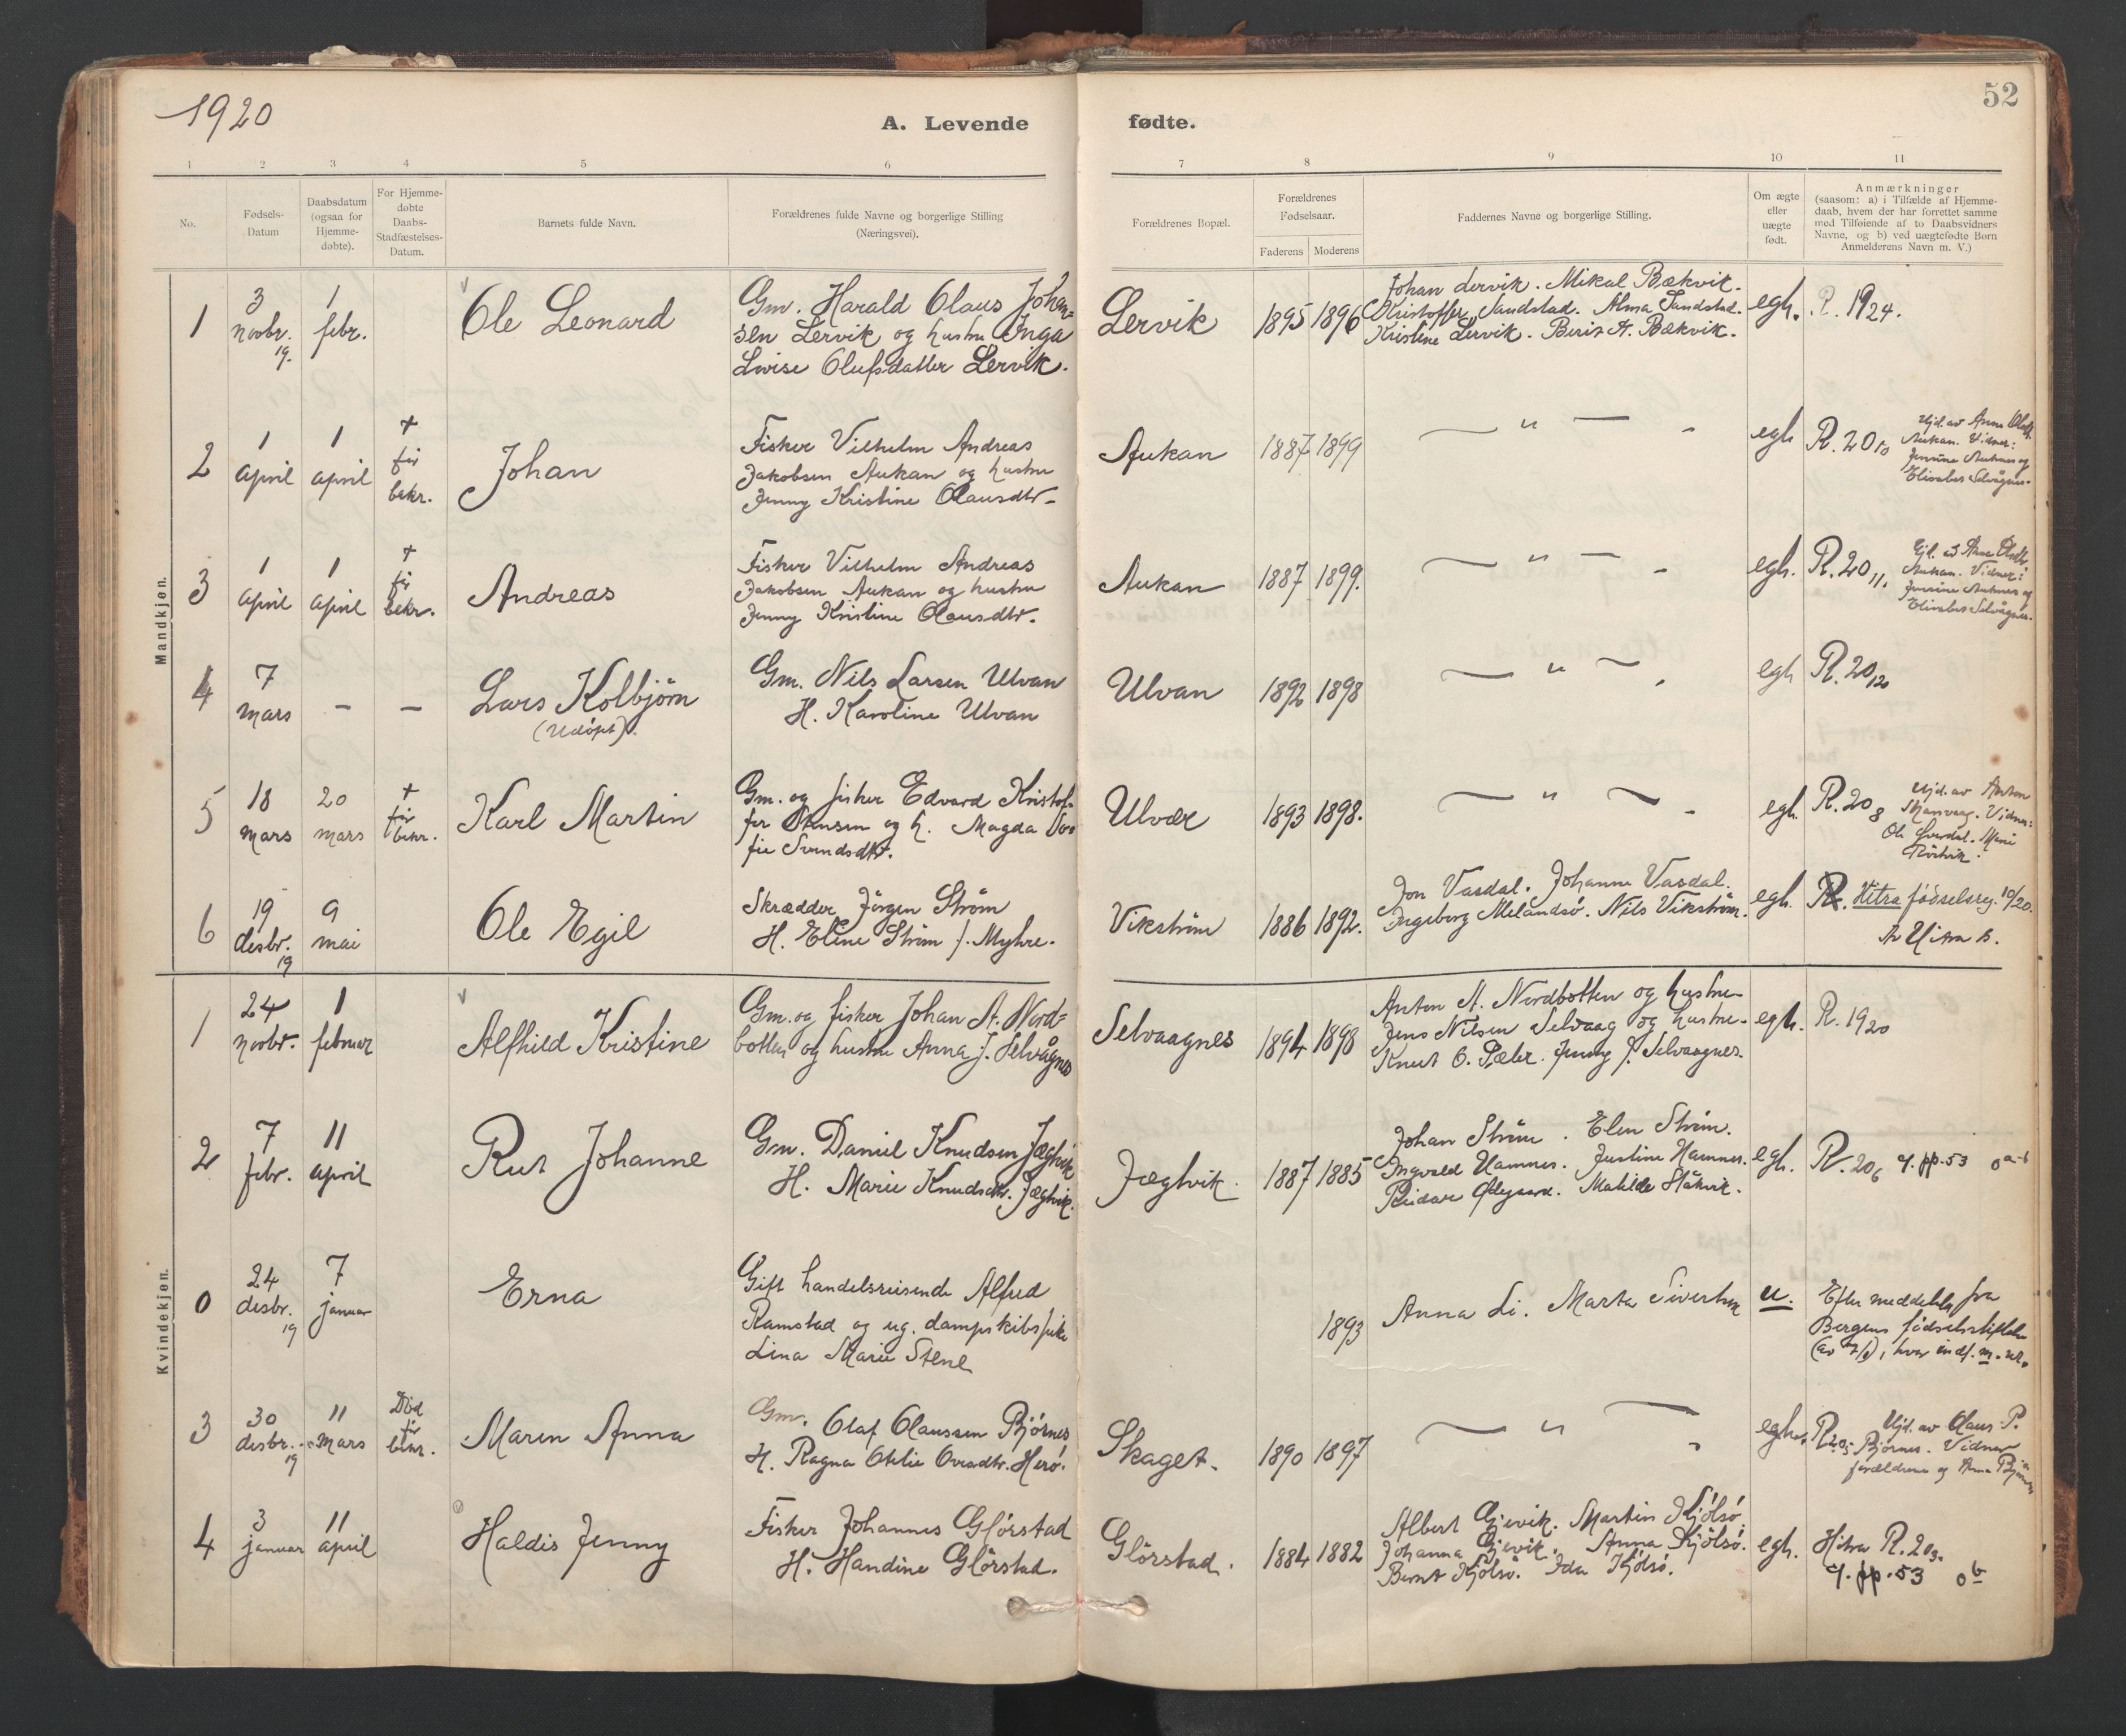 1920
A. Levende fødte.
52
1 2 3 4 5 6 7 8 9 10 11
No.
Fødsels-
Datum
Daabsdatum
(ogsaa for
Hjemme-
døbte).
For Hjemme-
døbte
Daabs-
Stadfæstelses-
Datum.
Barnets fulde Navn.
Forældrenes fulde Navne og borgerlige Stilling
(Næringsvei).
Forældrenes Bopæl.
Forældrenes
Fødselsaar.
Faderens Moderens
Faddernes Navne og borgerlige Stilling.
Om ægte
eller
uægte
født.
Anmærkninger
(saasom: a) i Tilfælde af Hjemme-
daab, hvem der har forrettet samme
med Tilføiende af to Daabsvidners
Navne, og b) ved uægtefødte Børn
Anmelderens Navn m. V.)
Mandkjøn.
1
3
novbr.
19.
1
febr.
Ole Leonard
Gm. Harald Olaus Johan=
sen Lervik og hustru Inga
Lovise Olufsdatter Lervik.
Lervik
1895 1896
Johan Lervik. Mikal Bækvik.
Kristoffer Sandstad. Alma Sandstad.
Kristine Lervik. Berit A. Bækvik.
egh.
R. 1924.
2
1
april
1
april
+
før
bekr.
Johan
Fisker Vilhelm Andreas
Jakobsen Aukan og hustru
Jenny Kristine Olausdtr.
Aukan
1887 1899
— " —
egh
R. 20 10
Hjd. av Anna Olsdtr.
Aukan. Vidner:
Jensine Auknes og
Elisabet Selvågnes.
3
1
april
1
april
+
før
bekr.
Andreas
Fisker Vilhelm Andreas
Jakobsen Aukan og hustru
Jenny Kristine Olausdtr.
Aukan
1887 1899.
— " —
egh.
R. 20 11.
Hjd. av Anna Olsdtr.
Aukan. Vidner:
Jensine Auknes og
Elisabet Selvågnes.
4
7
mars
—
—
Lars Kolbjørn
(Udöpt).
Gm. Nils Larsen Ulvan
H. Karoline Ulvan
Ulvan
1892 1898
— " —
egh
R. 20/20
5
18
mars
20
mars
+
før
bekr.
Karl Martin
Gm. og fisker Edvard Kristof-
fer Stensen og h. Magda So=
fie Svendsdtr.
Ulvær
1893 1898.
— " —
egh.
R. 20 8
Hjd. av Anton
Vidner:
Ole
6
19
desbr.
19
9
mai
Ole Egil
Skrædder Jörgen Ström
H. Eline Ström f. Myhre.
Vikström
1886 1892.
Jon Vasdal. Johanne Vasdal.
Ingeborg Melandsö. Nils Vikström.
egh.
R. Hitra fødselsreg. 10/20.
Kvindekjøn.
1
24
novbr.
1
februar
Alfhild Kristine
Gm. og fisker Johan A. Nord=
botten og hustru Anna J. Selvågnes
Selvaagnes
1894 1898
Anton A. Nordbotten og hustru
Jens Nilsen Selvaag og hustru.
Knut O. Sæter. Jenny J. Selvaagnes.
egh.
R. 1920
2
7
febr.
11
april
Rut Johanne
Gm. Daniel Knudsen Jægtvik
H. Marie Knudsdtr. Jægtvik.
Jægtvik.
1887 1885
Johan Ström. Elen Ström.
Ingvald Hamnes. Justine Hamnes.
Reidar Ødegaard. Matilde Håkvik.
egh.
R. 20 6
0
24
desbr.
19
7
januar
Erna
Gift handelsreisende Alfred
Ramstad og ug. dampskibspike
Lina Marie Stene
1893
Anna Li. Marta Sivertsen
u.
Efter meddelelse fra
Bergens fødselsstiftelse
3
30
desbr.
19
11
mars
Död
før
bekr.
Maren Anna
Gm. Olaf Olaussen Bjørnes
H. Ragna Otelie Ovesdtr. Herö.
Skaget.
1890 1897
— " —
egh.
R 20 5
Hjd. av Olaus P.
Bjørnes. Vidner
forældrene og Anna Bjørnes
4
3
januar
11
april
Haldis Jenny
Fisker Johannes Glörstad
H. Handine Glörstad.
Glörstad.
1884 1882
Albert Gjevik. Martin Kjölsö.
Johanna Gjevik. Anna Kjölsö.
Bernt Kjölsö. Ida Kjölsö.
egh.
Hitra R. 20 3.